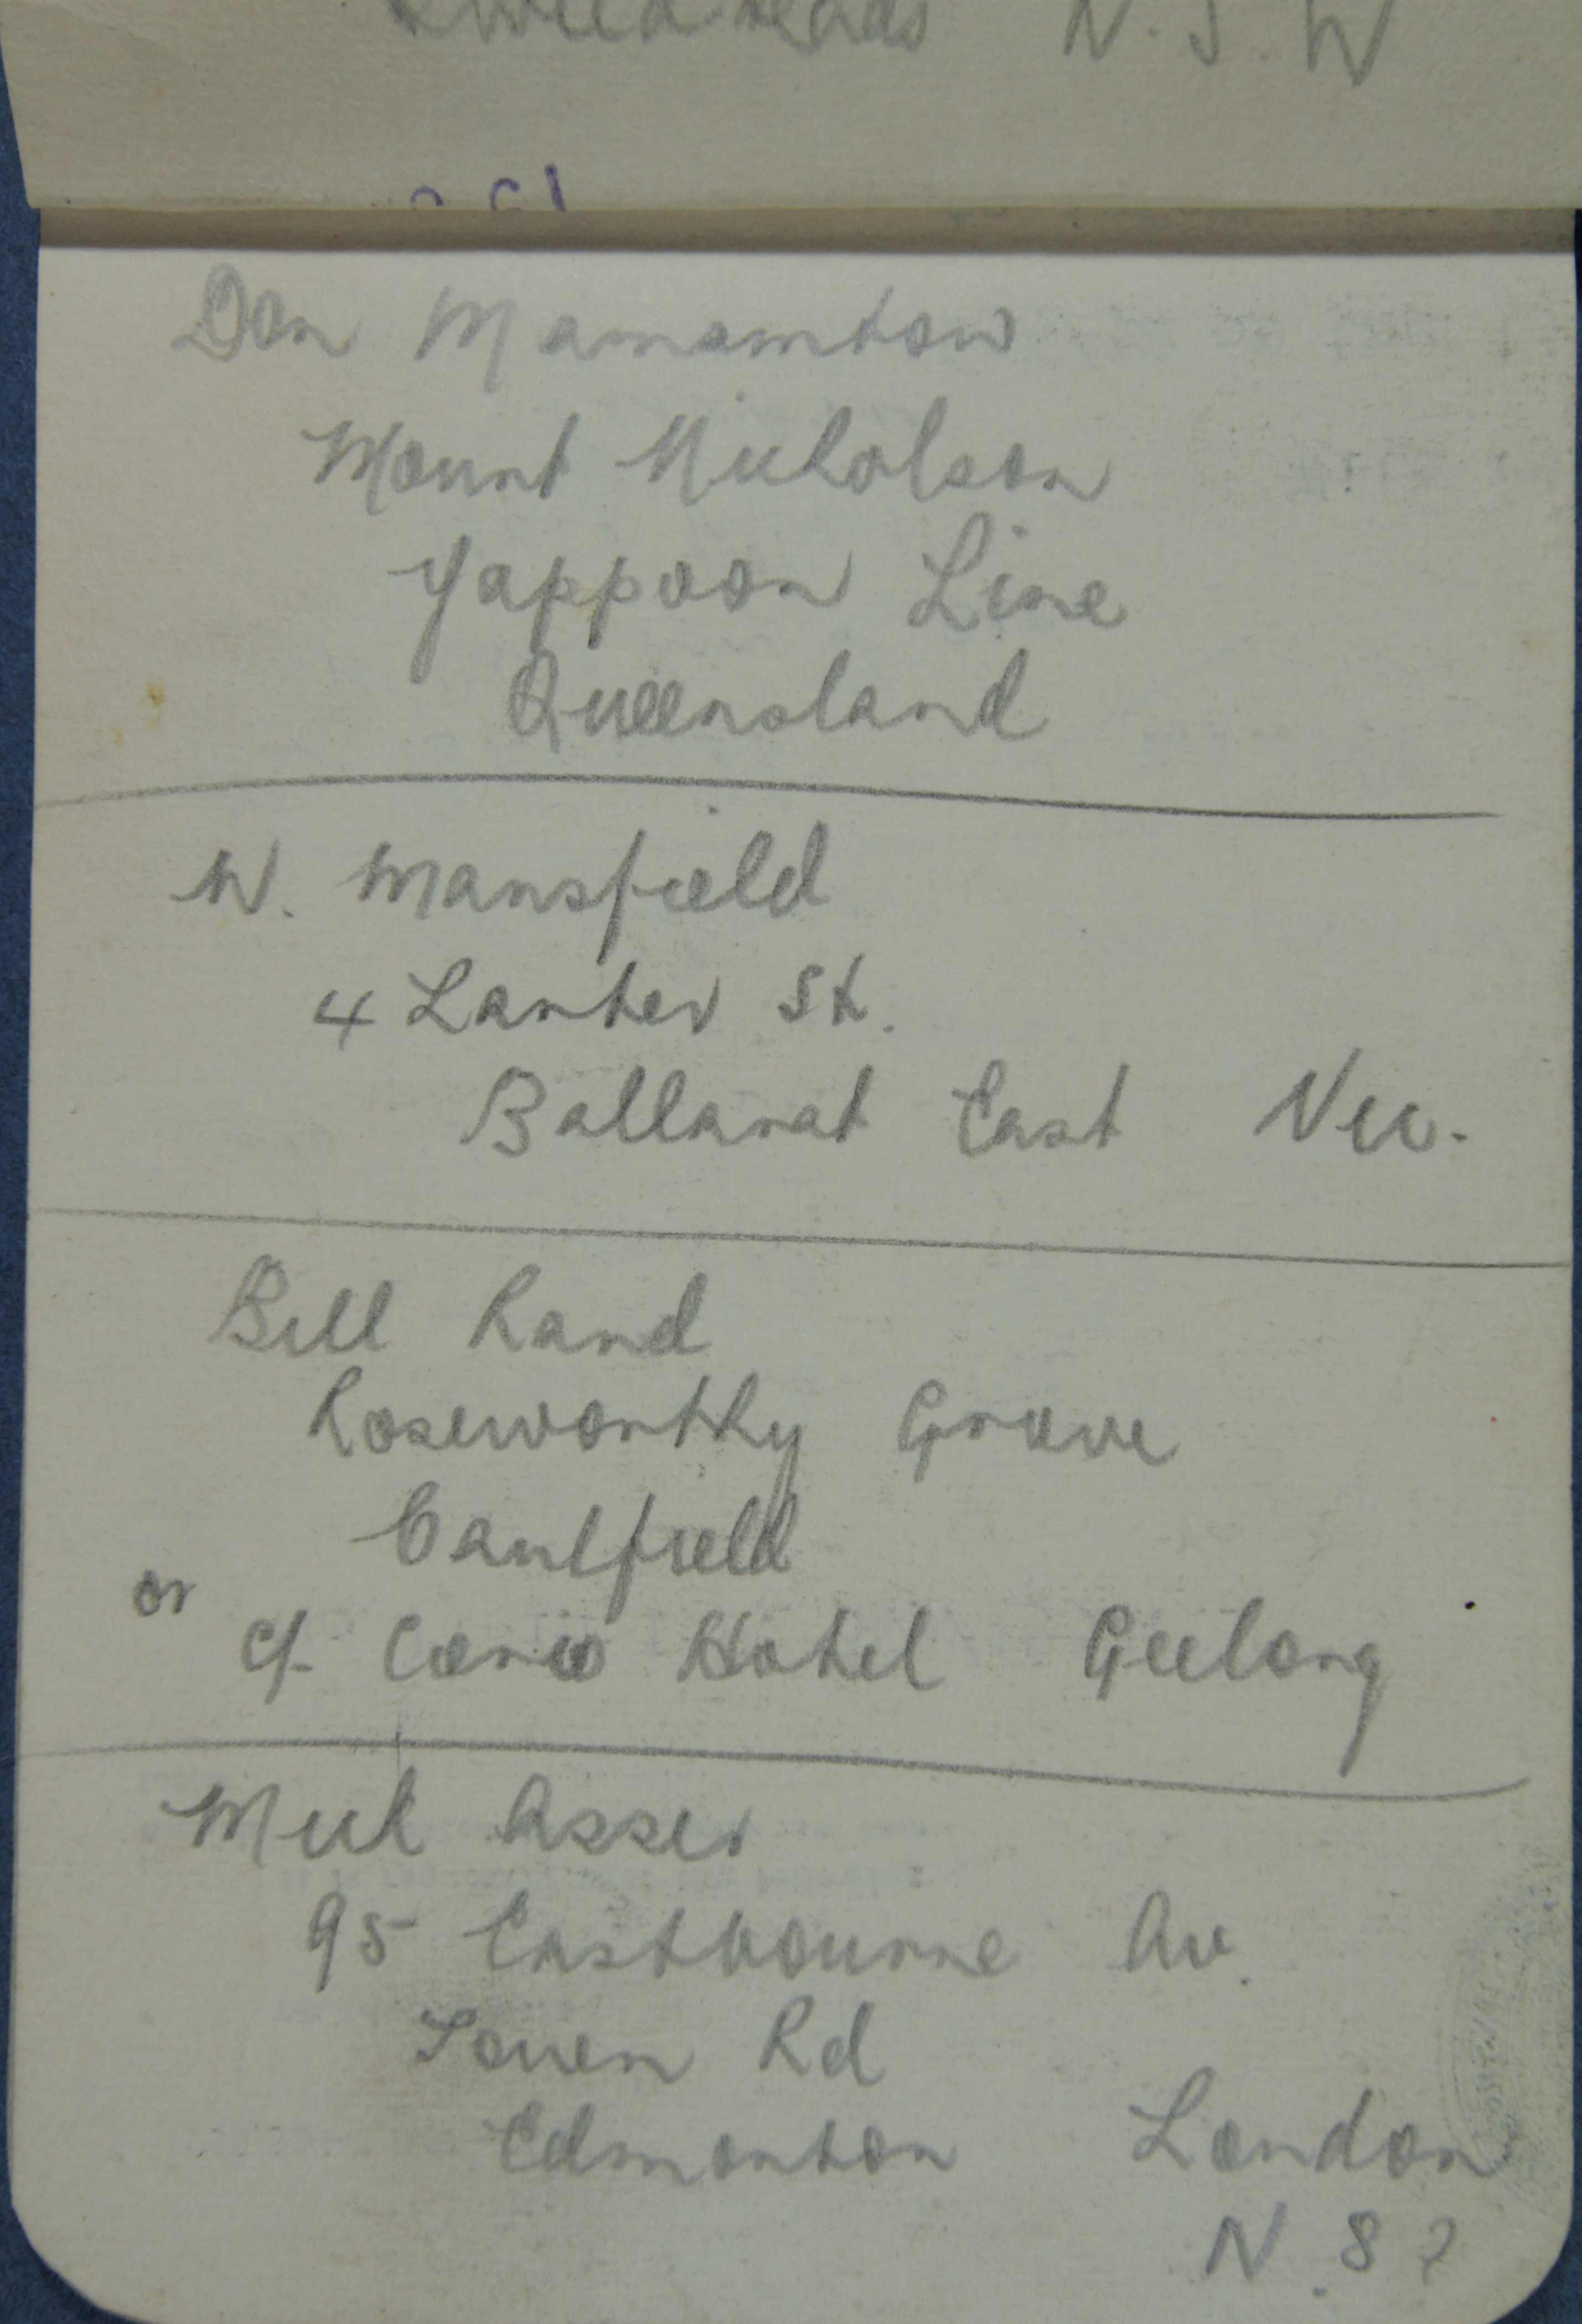 Tweed Heads N.S.W
Don
Mount Nicholson
Yappoon Line
Queensland
W. Mansfield
4 Larter St.
Ballarat East Vic.
Bill Rand
Roseworthy Grove
Caulfield
or
c/- Corio Hotel Geelong
Mick Asser
95 Eastbourne Av.
Town Rd
Edmonton London
N. 8 ?